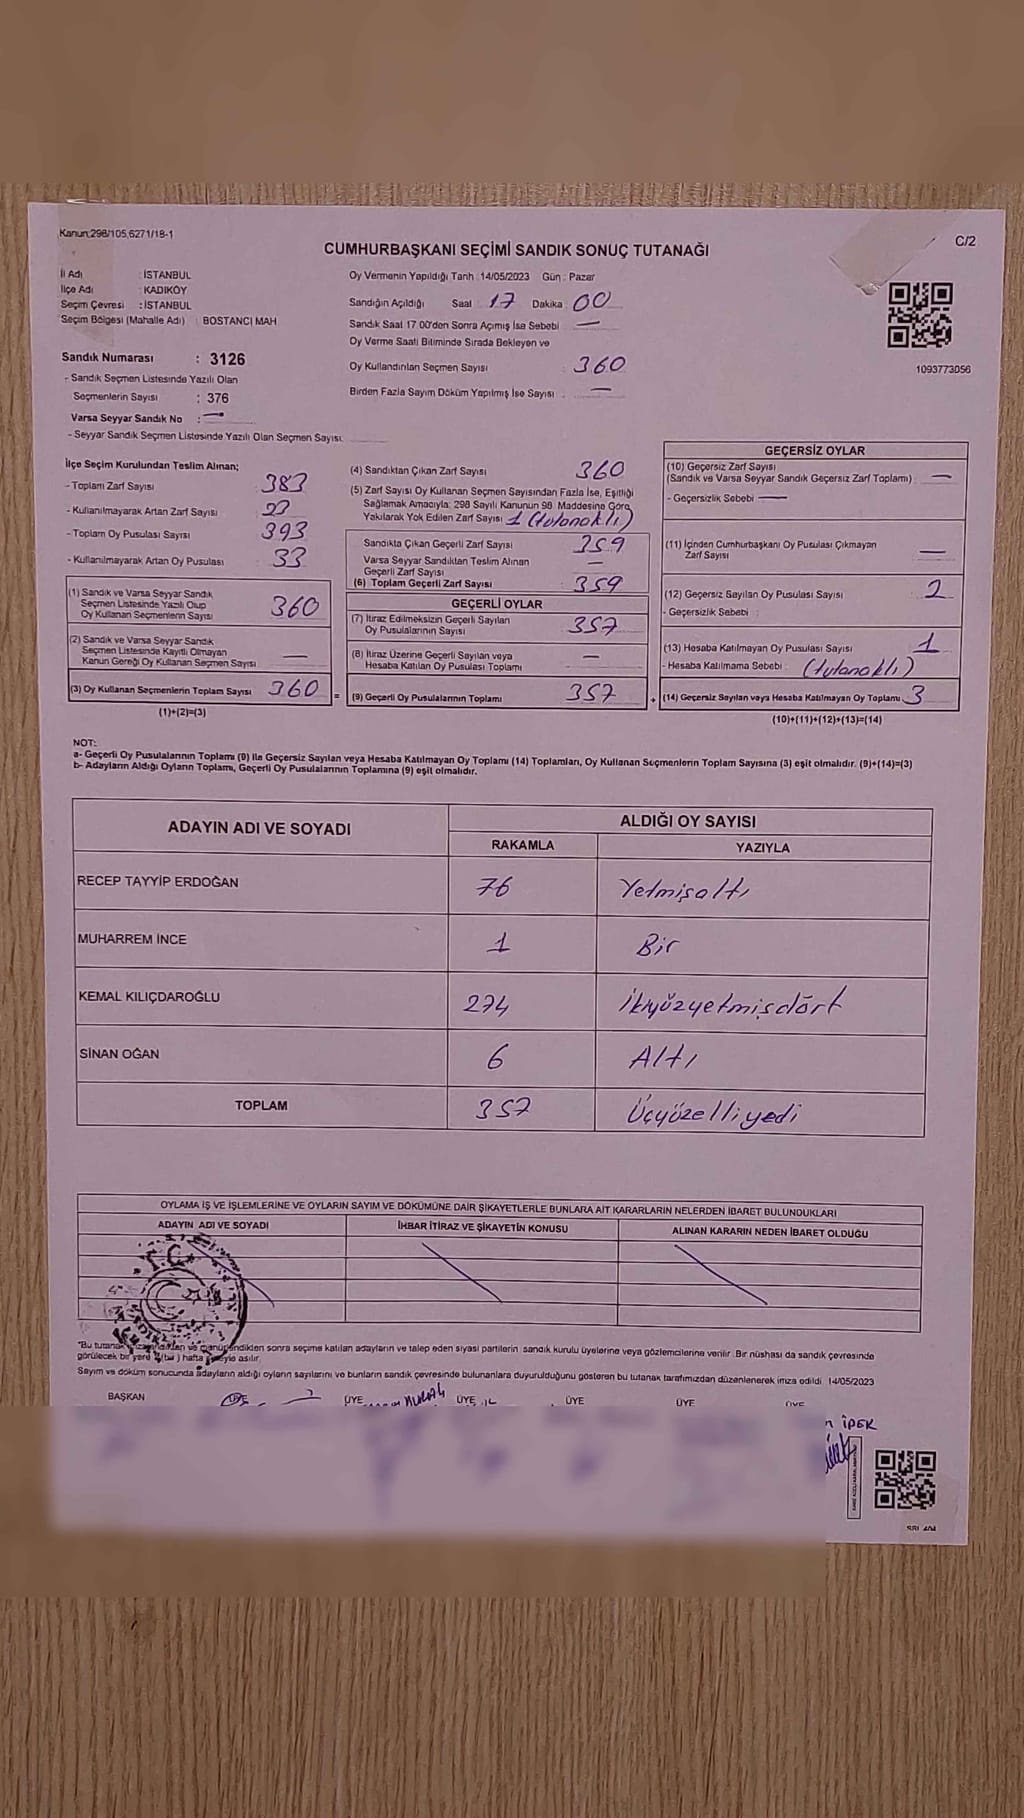 Kanun:298/105,6271/18-1
C/2
CUMHURBAŞKANI SEÇİMİ SANDIK SONUÇ TUTANAĞI
İl Adı : İSTANBUL
İlçe Adı : KADIKÖY
Seçim Çevresi : İSTANBUL
Seçim Bölgesi (Mahalle Adı) : BOSTANCI MAH
Sandık Numarası : 3126
- Sandık Seçmen Listesinde Yazılı Olan
Seçmenlerin Sayısı : 376
Varsa Seyyar Sandık No : —
- Seyyar Sandık Seçmen Listesinde Yazılı Olan Seçmen Sayısı:
Oy Vermenin Yapıldığı Tarih : 14/05/2023 Gün : Pazar
Sandığın Açıldığı Saat 17 Dakika : 00
Sandık Saat 17.00'den Sonra Açımış İse Sebebi —
Oy Verme Saati Bitiminde Sırada Bekleyen ve
Oy Kullandırılan Seçmen Sayısı : 360
Birden Fazla Sayım Döküm Yapılmış İse Sayısı : —
1093773056
İlçe Seçim Kurulundan Teslim Alınan;
- Toplam Zarf Sayısı 383
- Kullanılmayarak Artan Zarf Sayısı
- Toplam Oy Pusulası Sayısı 393
- Kullanılmayarak Artan Oy Pusulası 33
(1) Sandık ve Varsa Seyyar Sandık
Seçmen Listesinde Yazılı Olup
Oy Kullanan Seçmenlerin Sayısı 360
(2) Sandık ve Varsa Seyyar Sandık
Seçmen Listesinde Kayıtlı Olmayan
Kanun Gereği Oy Kullanan Seçmen Sayısı —
(3) Oy Kullanan Seçmenlerin Toplam Sayısı 360 =
(1)+(2)=(3)
(4) Sandıktan Çıkan Zarf Sayısı 360
(5) Zarf Sayısı Oy Kullanan Seçmen Sayısından Fazla İse, Eşitliği
Sağlamak Amacıyla; 298 Sayılı Kanunun 98. Maddesine Göre
Yakılarak Yok Edilen Zarf Sayısı 1 (tutanaklı)
Sandıkta Çıkan Geçerli Zarf Sayısı 359
Varsa Seyyar Sandıktan Teslim Alınan
Geçerli Zarf Sayısı —
(6) Toplam Geçerli Zarf Sayısı : 359
GEÇERLİ OYLAR
(7) İtiraz Edilmeksizin Geçerli Sayılan
Oy Pusulalarının Sayısı 357
(8) İtiraz Üzerine Geçerli Sayılan veya
Hesaba Katılan Oy Pusulası Toplamı —
(9) Geçerli Oy Pusulalarının Toplamı 357 +
GEÇERSİZ OYLAR
(10) Geçersiz Zarf Sayısı
(Sandık ve Varsa Seyyar Sandık Geçersiz Zarf Toplamı) —
- Geçersizlik Sebebi —
(11) İçinden Cumhurbaşkanı Oy Pusulası Çıkmayan
Zarf Sayısı —
(12) Geçersiz Sayılan Oy Pusulası Sayısı 2
- Geçersizlik Sebebi :
(13) Hesaba Katılmayan Oy Pusulası Sayısı 1
- Hesaba Katılmama Sebebi : (tutanaklı)
(14) Geçersiz Sayılan veya Hesaba Katılmayan Oy Toplamı 3
(10)+(11)+(12)+(13)=(14)
NOT:
a- Geçerli Oy Pusulalarının Toplamı (9) ile Geçersiz Sayılan veya Hesaba Katılmayan Oy Toplamı (14) Toplamları, Oy Kullanan Seçmenlerin Toplam Sayısına (3) eşit olmalıdır. (9)+(14)=(3)
b- Adayların Aldığı Oyların Toplamı, Geçerli Oy Pusulalarının Toplamına (9) eşit olmalıdır.
ADAYIN ADI VE SOYADI
ALDIĞI OY SAYISI
RAKAMLA YAZIYLA
RECEP TAYYİP ERDOĞAN 76 Yetmişaltı
MUHARREM İNCE 1 Bir
KEMAL KILIÇDAROĞLU 274 İkiyüzyetmişdört
SİNAN OĞAN 6 Altı
TOPLAM 357 Üçyüzelliyedi
OYLAMA İŞ VE İŞLEMLERİNE VE OYLARIN SAYIM VE DÖKÜMÜNE DAİR ŞİKAYETLERLE BUNLARA AİT KARARLARIN NELERDEN İBARET BULUNDUKLARI
ADAYIN ADI VE SOYADI İHBAR İTİRAZ VE ŞİKAYETİN KONUSU ALINAN KARARIN NEDEN İBARET OLDUĞU
T.C.
"Bu tutanak sonra seçime katılan adayların ve talep eden siyasi partilerin sandık kurulu üyelerine veya gözlemcilerine verilir. Bir nüshası da sandık çevresinde
görülecek bir yere hafta asılır.
Sayım ve döküm sonucunda adayların aldığı oyların sayılarını ve bunların sandık çevresinde bulunanlara duyurulduğunu gösteren bu tutanak tarafımızdan düzenlenerek imza edildi. 14/05/2023
BAŞKAN ÜYE ÜYE ÜYE ÜYE ÜYE
İPEK